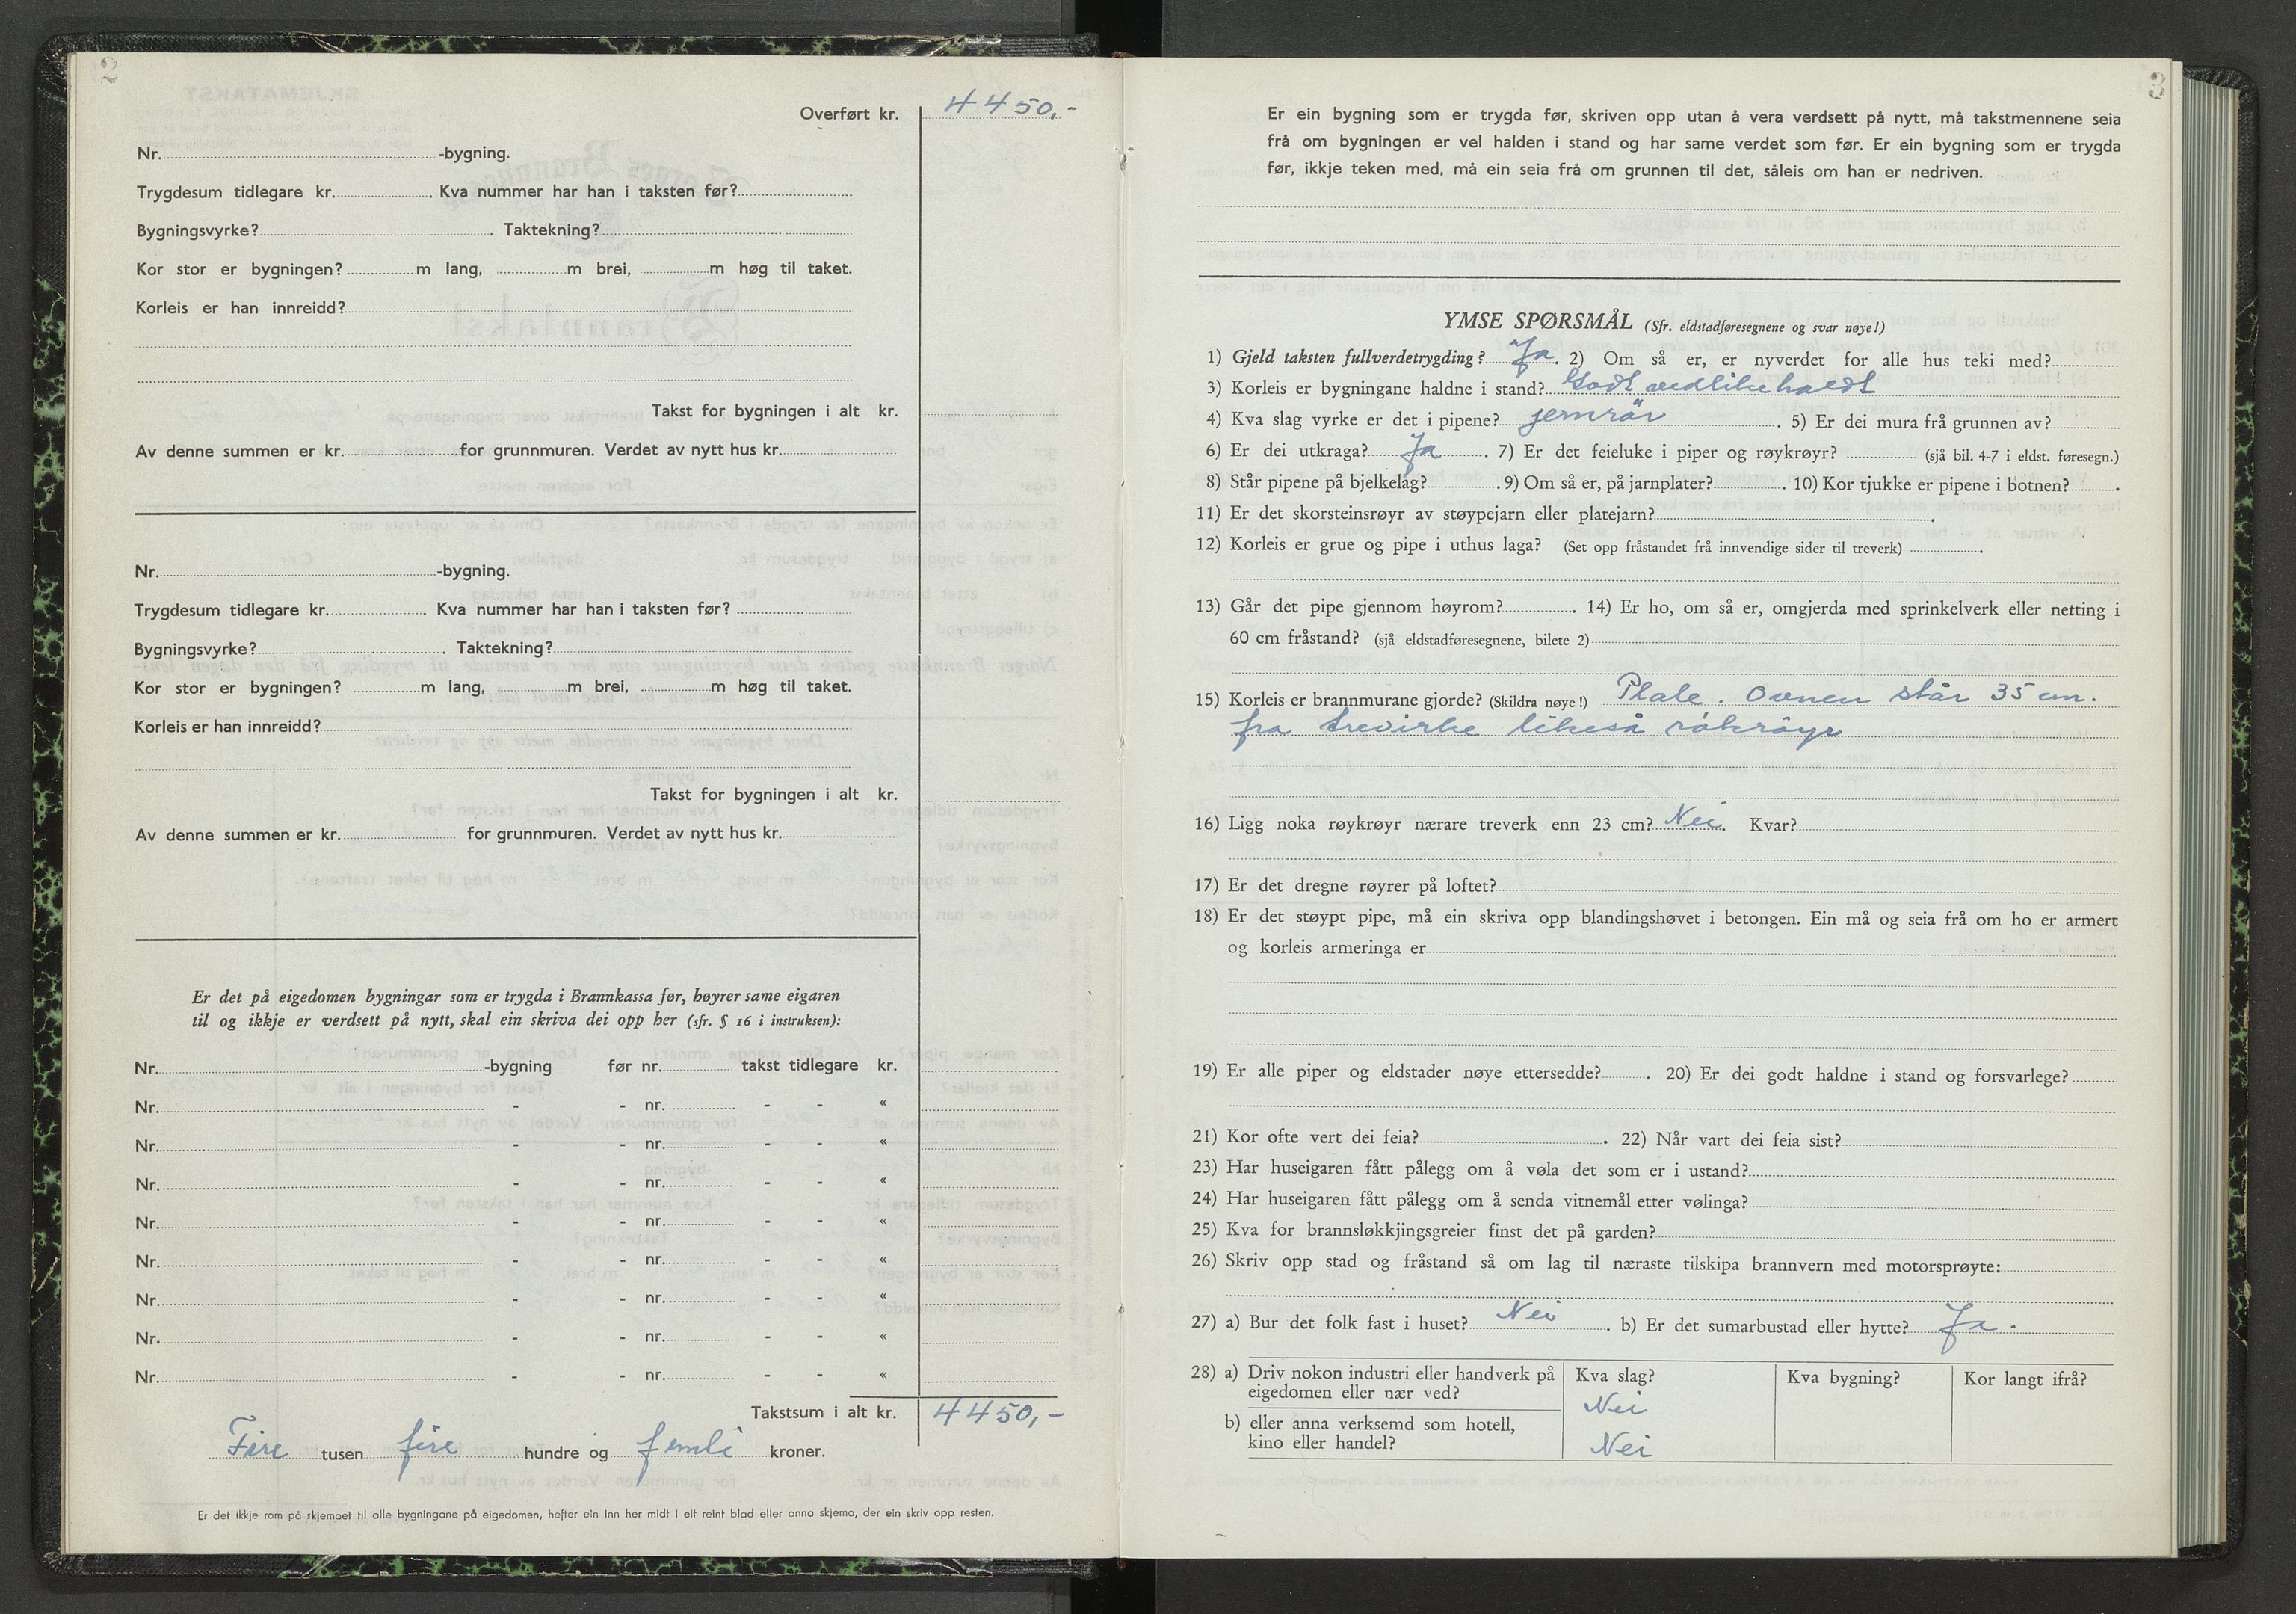 2
Overført kr. 4450,-
Nr. -bygning.
Trygdesum tidlegare kr. . Kva nummer har han i taksten før?
Bygningsvyrke? . Taktekning?
Kor stor er bygningen? m lang, m brei, m høg til taket.
Korleis er han innreidd?
Takst for bygningen i alt kr.
Av denne summen er kr. for grunnmuren. Verdet av nytt hus kr.
Nr. -bygning.
Trygdesum tidlegare kr. . Kva nummer har han i taksten før?
Bygningsvyrke? . Taktekning?
Kor stor er bygningen? m lang, m brei, m høg til taket.
Korleis er han innreidd?
Takst for bygningen i alt kr.
Av denne summen er kr. for grunnmuren. Verdet av nytt hus kr.
Er det på eigedomen bygningar som er trygda i Brannkassa før, høyrer same eigaren
til og ikkje er verdsett på nytt, skal ein skriva dei opp her (sfr. § 16 i instruksen):
Nr. -bygning før nr. takst tidlegare kr.
Nr. - - nr. - - «
Nr. - - nr. - - «
Nr. - - nr. - - «
Nr. - - nr. - - «
Nr. - - nr. - - «
Nr. - - nr. - - «
Nr. - - nr. - - «
Nr. - - nr. - - «
Takstsum i alt kr. 4450,-
Fire tusen fire hundre og femti kroner.
Er det ikkje rom på skjemaet til alle bygningane på eigedomen, hefter ein inn her midt i eit reint blad eller anna skjema, der ein skriv opp resten.
3
Er ein bygning som er trygda før, skriven opp utan å vera verdsett på nytt, må takstmennene seia
frå om bygningen er vel halden i stand og har same verdet som før. Er ein bygning som er trygda
før, ikkje teken med, må ein seia frå om grunnen til det, såleis om han er nedriven.
YMSE SPØRSMÅL (Sfr. eldstadføresegnene og svar nøye!)
1) Gjeld taksten fullverdetrygding? Ja. 2) Om så er, er nyverdet for alle hus teki med?
3) Korleis er bygningane haldne i stand? Godt vedlikehaldt
4) Kva slag vyrke er det i pipene? jernrör . 5) Er dei mura frå grunnen av?
6) Er dei utkraga? Ja . 7) Er det feieluke i piper og røykrøyr? (sjå bil. 4-7 i eldst. føresegn.)
8) Står pipene på bjelkelag? . 9) Om så er, på jarnplater? . 10) Kor tjukke er pipene i botnen? .
11) Er det skorsteinsrøyr av støypejarn eller platejarn? .
12) Korleis er grue og pipe i uthus laga? (Set opp fråstandet frå innvendige sider til treverk) .
13) Går det pipe gjennom høyrom? . 14) Er ho, om så er, omgjerda med sprinkelverk eller netting i
60 cm fråstand? (sjå eldstadføresegnene, bilete 2)
15) Korleis er brannmurane gjorde? (Skildra nøye!) Plate. Ovnen står 35 cm.
fra trevirke likeså rökröyr
16) Ligg noka røykrøyr nærare treverk enn 23 cm? Nei. Kvar?
17) Er det dregne røyrer på loftet?
18) Er det støypt pipe, må ein skriva opp blandingshøvet i betongen. Ein må og seia frå om ho er armert
og korleis armeringa er
19) Er alle piper og eldstader nøye ettersedde? . 20) Er dei godt haldne i stand og forsvarlege?
21) Kor ofte vert dei feia? . 22) Når vart dei feia sist?
23) Har huseigaren fått pålegg om å vøla det som er i ustand?
24) Har huseigaren fått pålegg om å senda vitnemål etter vølinga?
25) Kva for brannsløkkjingsgreier finst det på garden?
26) Skriv opp stad og fråstand så om lag til næraste tilskipa brannvern med motorsprøyte:
27) a) Bur det folk fast i huset? Nei . b) Er det sumarbustad eller hytte? Ja.
28) a) Driv nokon industri eller handverk på Kva slag? Kva bygning? Kor langt ifrå?
eigedomen eller nær ved? Nei
b) eller anna verksemd som hotell,
kino eller handel? Nei